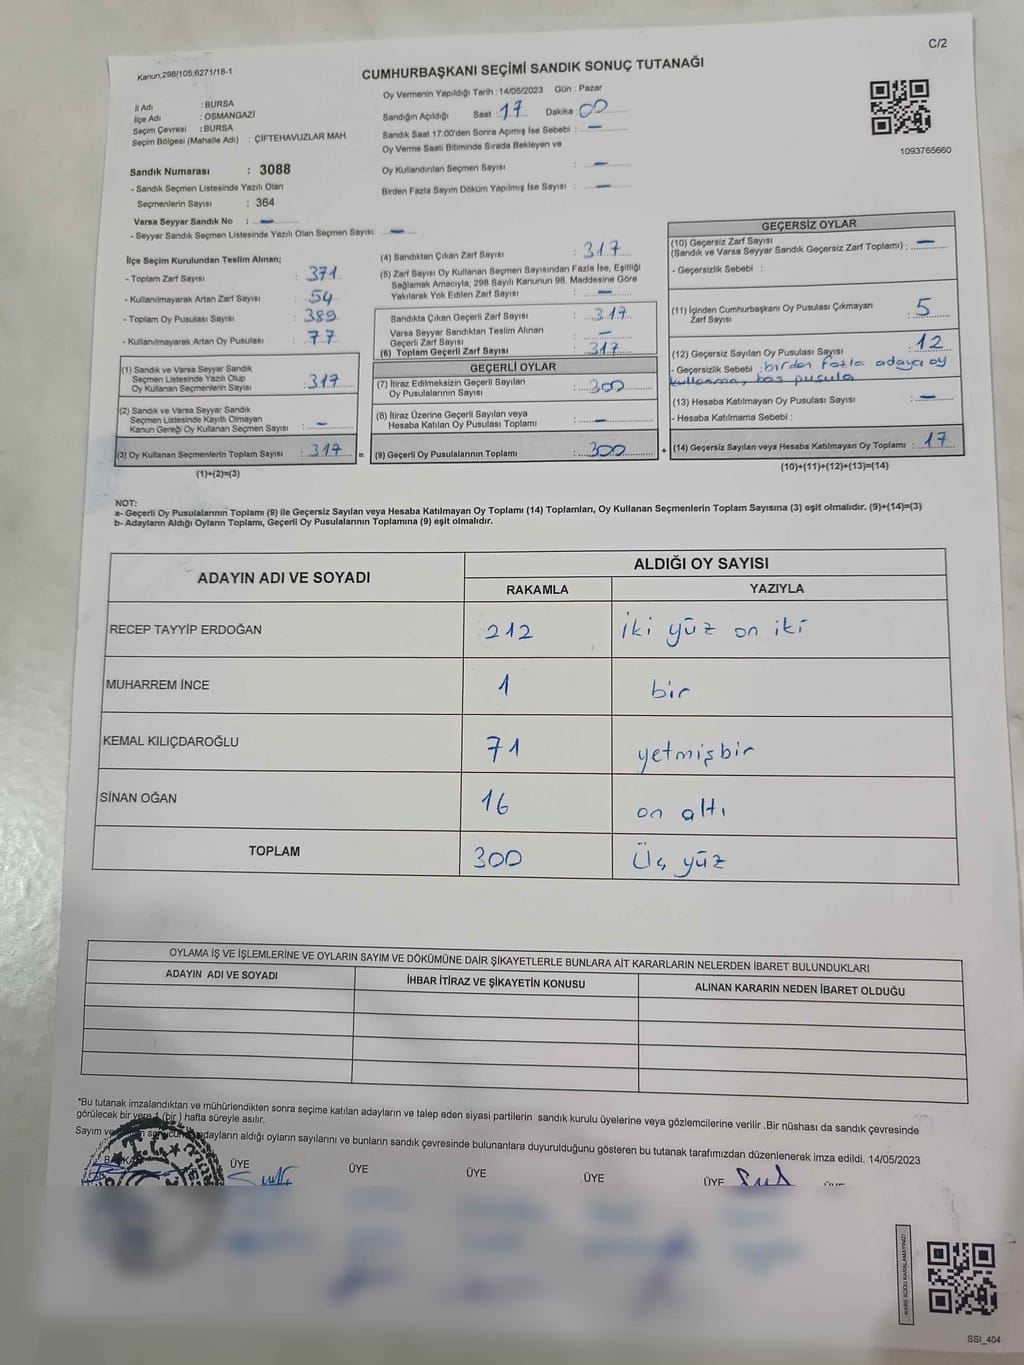 C/2
Kanun:298/105;6271/16-1
CUMHURBAŞKANI SEÇİMİ SANDIK SONUÇ TUTANAĞI
İl Adı : BURSA
İlçe Adı : OSMANGAZİ
Seçim Çevresi : BURSA
Seçim Bölgesi (Mahalle Adı) : ÇİFTEHAVUZLAR MAH.
Sandık Numarası : 3088
- Sandık Seçmen Listesinde Yazılı Olan
Seçmenlerin Sayısı : 364
Varsa Seyyar Sandık No : —
- Seyyar Sandık Seçmen Listesinde Yazılı Olan Seçmen Sayısı: —
Oy Vermenin Yapıldığı Tarih : 14/05/2023 Gün : Pazar
Sandığın Açıldığı Saat : 17 Dakika : 00
Sandık Saat 17:00'den Sonra Açımış İse Sebebi : —
Oy Verme Saati Bitiminde Sırada Bekleyen ve
Oy Kullandırılan Seçmen Sayısı : —
Birden Fazla Sayım Döküm Yapılmış İse Sayısı : —
1093765660
İlçe Seçim Kurulundan Teslim Alınan;
- Toplam Zarf Sayısı : 371
- Kullanılmayarak Artan Zarf Sayısı : 54
- Toplam Oy Pusulası Sayısı : 389
- Kullanılmayarak Artan Oy Pusulası : 77
(1) Sandık ve Varsa Seyyar Sandık
Seçmen Listesinde Yazılı Olup
Oy Kullanan Seçmenlerin Sayısı : 317
(2) Sandık ve Varsa Seyyar Sandık
Seçmen Listesinde Kayıtlı Olmayan
Kanun Gereği Oy Kullanan Seçmen Sayısı : —
(3) Oy Kullanan Seçmenlerin Toplam Sayısı : 317 =
(1)+(2)=(3)
(4) Sandıktan Çıkan Zarf Sayısı : 317
(5) Zarf Sayısı Oy Kullanan Seçmen Sayısından Fazla İse, Eşitliği
Sağlamak Amacıyla; 298 Sayılı Kanunun 98. Maddesine Göre
Yakılarak Yok Edilen Zarf Sayısı : —
Sandıkta Çıkan Geçerli Zarf Sayısı : 317
Varsa Seyyar Sandıktan Teslim Alınan
Geçerli Zarf Sayısı : —
(6) Toplam Geçerli Zarf Sayısı : 317
GEÇERLİ OYLAR
(7) İtiraz Edilmeksizin Geçerli Sayılan
Oy Pusulalarının Sayısı : 300
(8) İtiraz Üzerine Geçerli Sayılan veya
Hesaba Katılan Oy Pusulası Toplamı : —
(9) Geçerli Oy Pusulalarının Toplamı : 300 +
GEÇERSİZ OYLAR
(10) Geçersiz Zarf Sayısı
(Sandık ve Varsa Seyyar Sandık Geçersiz Zarf Toplamı) : —
- Geçersizlik Sebebi :
(11) İçinden Cumhurbaşkanı Oy Pusulası Çıkmayan
Zarf Sayısı : 5
(12) Geçersiz Sayılan Oy Pusulası Sayısı : 12
- Geçersizlik Sebebi : birden fazla adaya oy
kullanma, boş pusula
(13) Hesaba Katılmayan Oy Pusulası Sayısı : —
- Hesaba Katılmama Sebebi :
(14) Geçersiz Sayılan veya Hesaba Katılmayan Oy Toplamı : 17
(10)+(11)+(12)+(13)=(14)
NOT:
a- Geçerli Oy Pusulalarının Toplamı (9) ile Geçersiz Sayılan veya Hesaba Katılmayan Oy Toplamı (14) Toplamları, Oy Kullanan Seçmenlerin Toplam Sayısına (3) eşit olmalıdır. (9)+(14)=(3)
b- Adayların Aldığı Oyların Toplamı, Geçerli Oy Pusulalarının Toplamına (9) eşit olmalıdır.
ADAYIN ADI VE SOYADI ALDIĞI OY SAYISI
RAKAMLA YAZIYLA
RECEP TAYYİP ERDOĞAN 212 iki yüz on iki
MUHARREM İNCE 1 bir
KEMAL KILIÇDAROĞLU 71 yetmişbir
SİNAN OĞAN 16 on altı
TOPLAM 300 Üç yüz
OYLAMA İŞ VE İŞLEMLERİNE VE OYLARIN SAYIM VE DÖKÜMÜNE DAİR ŞİKAYETLERLE BUNLARA AİT KARARLARIN NELERDEN İBARET BULUNDUKLARI
ADAYIN ADI VE SOYADI İHBAR İTİRAZ VE ŞİKAYETİN KONUSU ALINAN KARARIN NEDEN İBARET OLDUĞU
*Bu tutanak imzalandıktan ve mühürlendikten sonra seçime katılan adayların ve talep eden siyasi partilerin sandık kurulu üyelerine veya gözlemcilerine verilir .Bir nüshası da sandık çevresinde
görülecek bir yere 1 (bir ) hafta süreyle asılır.
Sayım ve adayların aldığı oyların sayılarını ve bunların sandık çevresinde bulunanlara duyurulduğunu gösteren bu tutanak tarafımızdan düzenlenerek imza edildi. 14/05/2023
ÜYE ÜYE ÜYE ÜYE ÜYE
KARE KODU KARALAMAYINIZ!
SSI_404